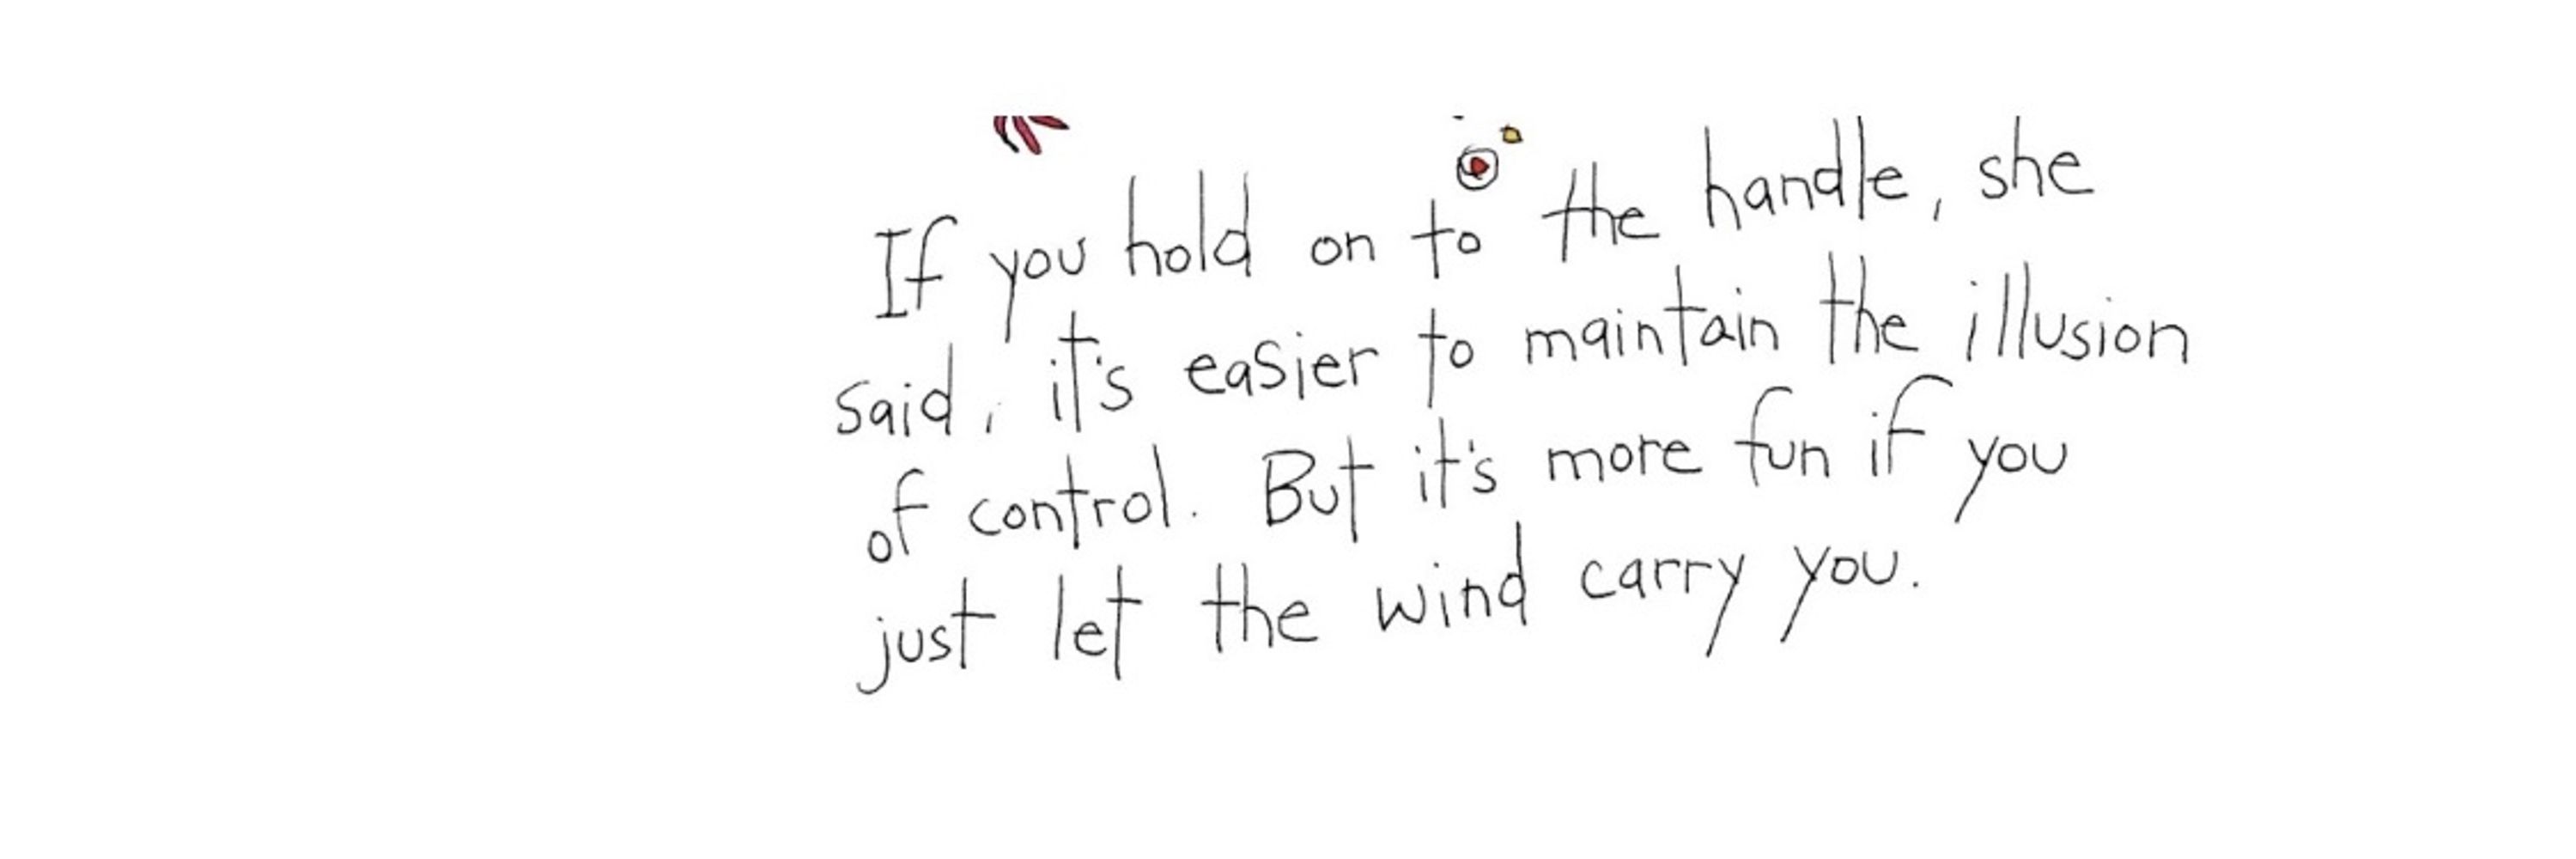 If you hold on to the handle, she
said, it's easier to maintain the illusion
of control. But it's more fun if you
just let the wind carry you.